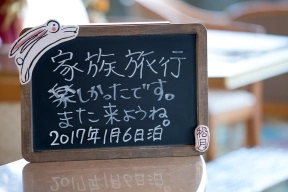 家族旅行
楽しかったです。
また来ようね。
2017年1月6日泊
松月